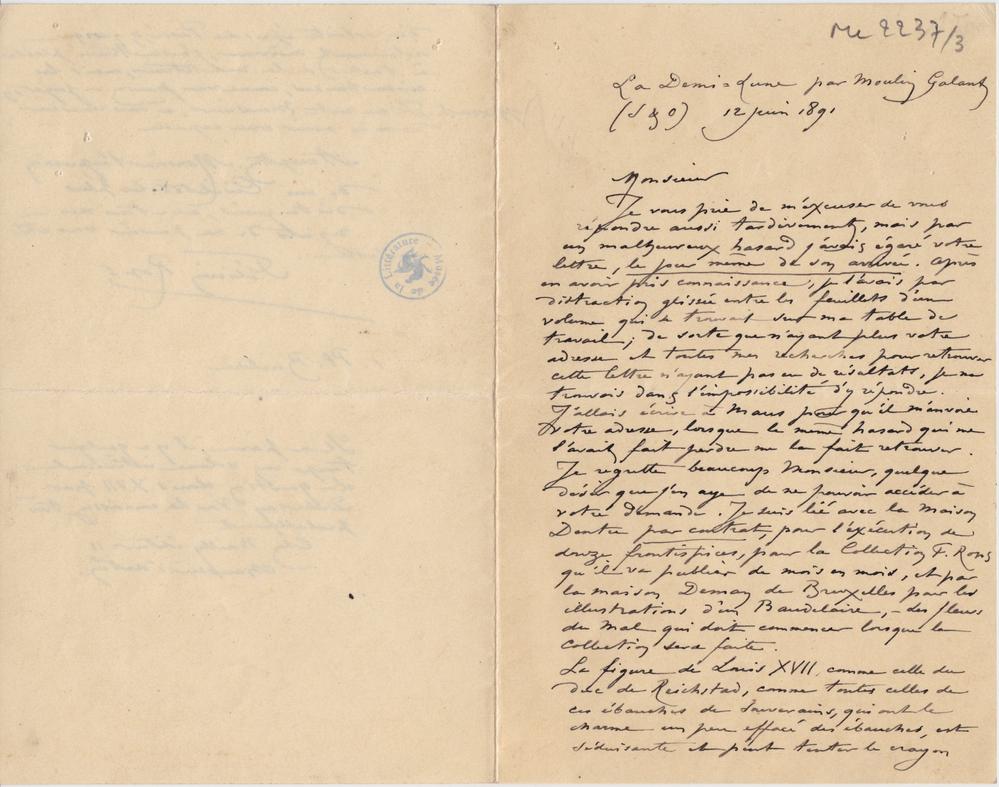 ML 2237/3
La Demi-Lune par Moulin Galant
(S & O) 12 juin 1891
Monsieur
Je vous prie de m'excuser de vous
répondre aussi tardivement, mais par
un malheureux hasard j'avais égaré votre
lettre, le jour même de son arrivée. Après
en avoir pris connaissance, je l'avais par
distraction glissée entre les feuillets d'un
volume qui se trouvait sur ma table de
travail; de sorte que n'ayant plus votre
adresse et toutes mes recherches pour retrouver
cette lettre n'ayant pas eu de résultats, je me
trouvais dans l'impossibilité d'y répondre.
J'allais écrire à Maus pour qu'il m'envoie
votre adresse, lorsque le même hasard qui me
l'avait fait perdre me la fait retrouver.
Je regrette beaucoup Monsieur, quelque
désir que j'en aye de ne pouvoir accéder à
votre demande. Je suis lié avec la maison
Dentu par contrat, pour l'exécution de
douze frontispices, pour la Collection F. Rops
qu'il va publier de mois en mois, et par
la maison Deman de Bruxelles pour les
illustrations d'un Baudelaire, – des fleurs
du Mal qui doit commencer lorsque la
Collection sera faite.
La figure de Louis XVII, comme celle du
duc de Reichstad, comme toutes celles de
ces ébauches de Souverains, qui ont le
charme un peu effacé des ébauches, est
séduisante et peut tenter le crayon
Musée de la Littérature